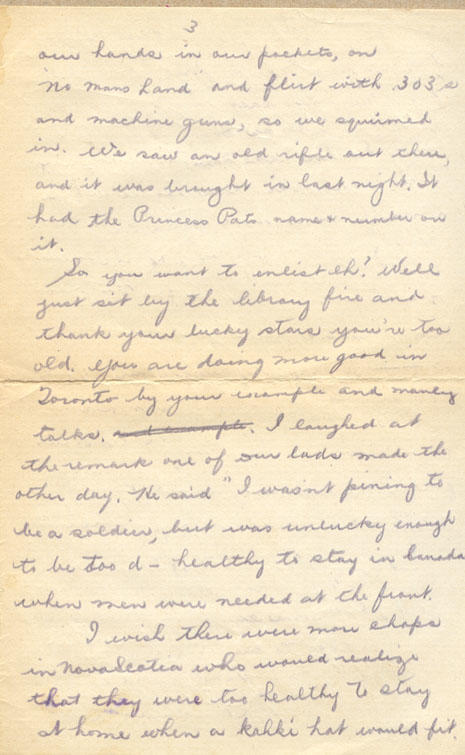 3
our hands in our pockets, on
"No mans Land" and flirt with .303s
and machine guns, so we squirmed
in. We saw an old rifle out there,
and it was brought in last night. It
had the Princess Pats name & number on
it.
So you want to enlist eh? Well
just sit by the library fire and
thank your lucky stars you're too
old. You are doing more good in
Toronto by your example and manly
talks. and example. I laughed at
the remark one of our lads made the
other day. He said "I wasn't pining to
be a soldier, but was unlucky enough
to be too d- healthy to stay in Canada
when men were needed at the front.
I wish there were more chaps
in Nova Scotia who would realize
that they were too healthy to stay
at home when a kahki hat would fit.